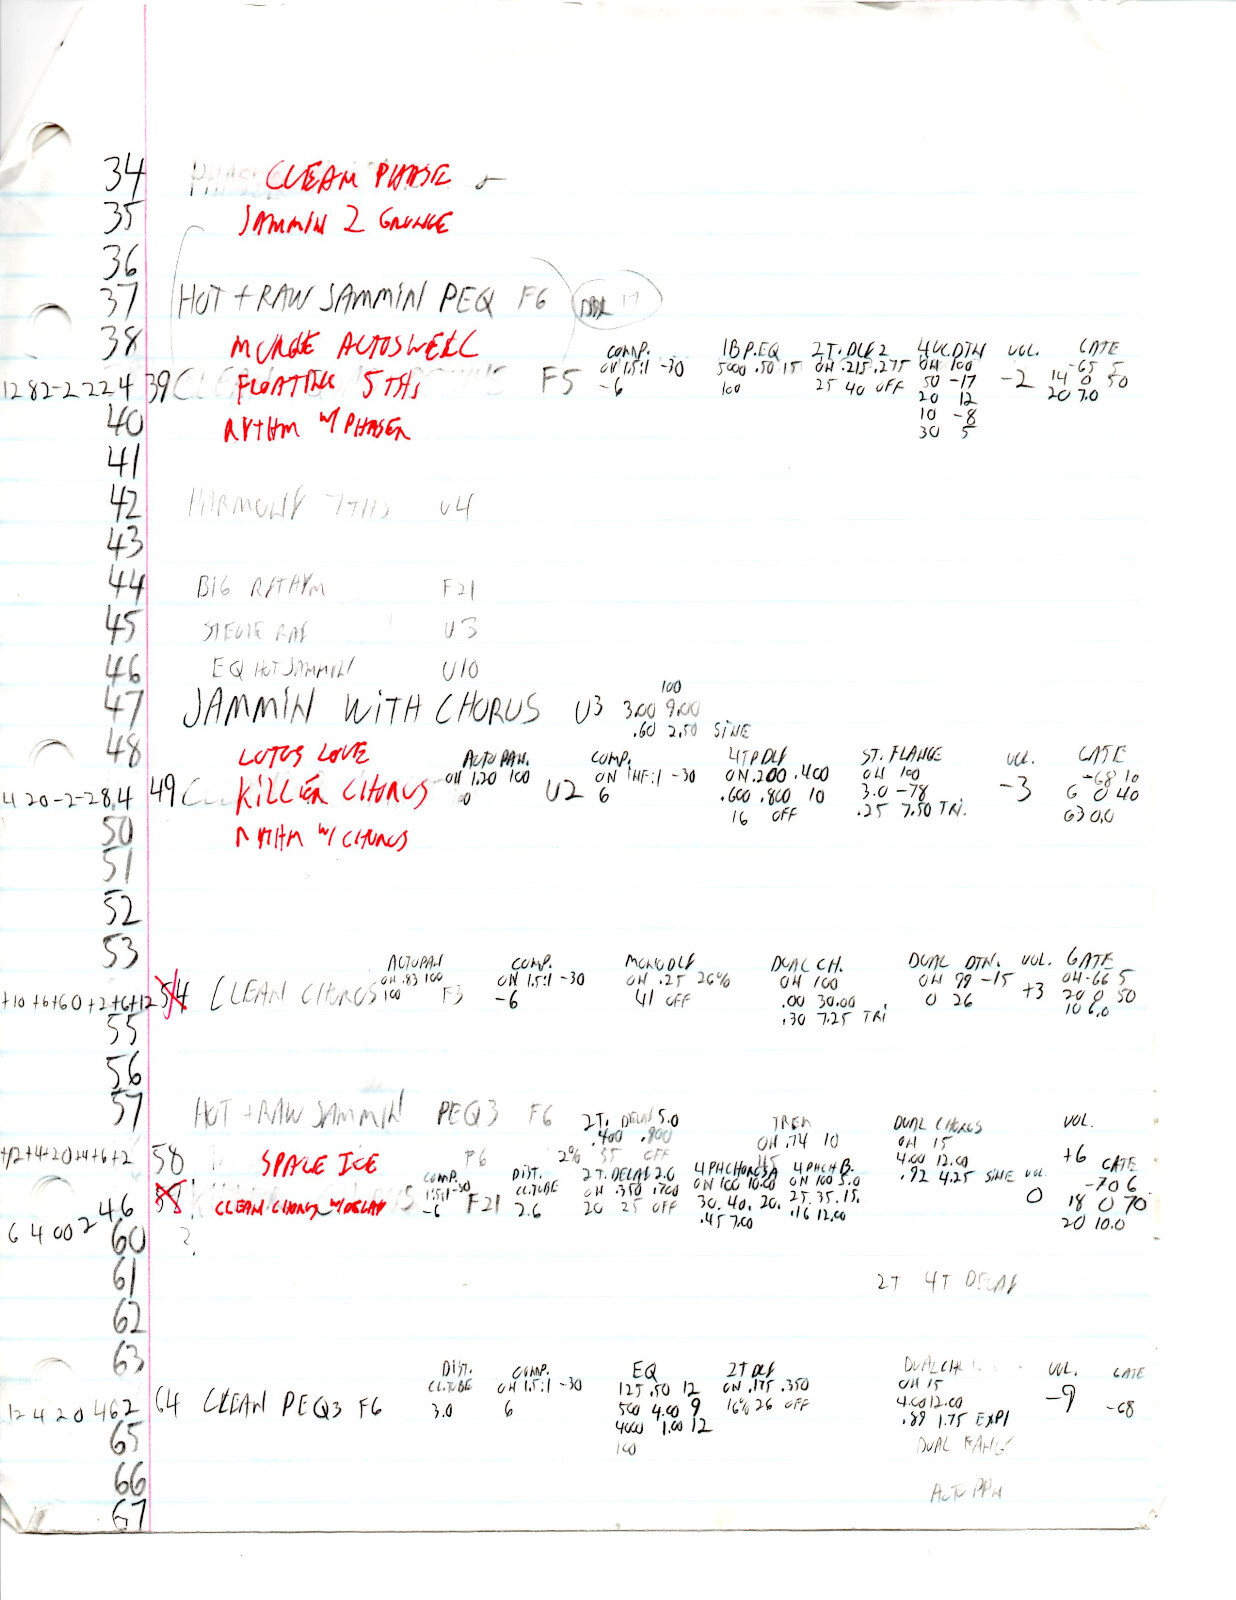 34 CLEAN PHASE
35 JAMMIN 2 GRUNGE
36
37 HOT + RAW JAMMIN PEQ F6 DBL 17
38 MURGE AUTOSWELL COMP. 1B P.EQ 2T. DLY 2 4 VC.DTN VOL. GATE
ON 1.5:1 -30 5000 .50 15 ON .215 .275 ON 100 -65 5
12 8 2 -2 2 2 4 39 FLOATING 5THS F5 -6 100 25 40 OFF 50 -17 -2 14 0 50
20 12 20 7.0
40 RYTHM W/ PHASER 10 -8
30 5
41
42 HARMONY 7THS U4
43
44 BIG RYTHYM F21
45 STEVIE RAY U3
46 EQ HOT JAMMIN U10
100
47 JAMMIN WITH CHORUS U3 3.00 9.00
.60 2.50 SINE
48 LOTUS LOVE AUTO PAN. COMP. 4TP DLY ST. FLANGE VOL. GATE
ON 1.20 100 ON INF:1 -30 ON .200 .400 ON 100 -68 10
4 20 -2 -2 8.4 49 KILLER CHORUS 100 U2 6 .600 .800 10 3.0 -78 -3 6 0 40
16 OFF .25 7.50 TRI. 63 0.0
50 RYTHM W/ CHORUS
51
52
53 AUTOPAN COMP. MONO DLY DUAL CH. DUAL DTN. VOL. GATE
ON .83 100 ON 1.5:1 -30 ON .25 26% ON 100 ON 99 -15 ON -66 5
+10 +6 +60 +2 +6 +12 54 CLEAN CHORUS 100 F3 -6 41 OFF .00 30.00 0 26 +3 20 0 50
.30 7.25 TRI 10 6.0
55
56
57 HOT + RAW JAMMIN PEQ3 F6 2T. DELAY 5.0 TREM DUAL CHORUS VOL.
.400 .800 ON .74 10 ON 15
+12 +4 +20 +4 +6 +2 58 SPACE ICE F6 2% 35 OFF 4.00 12.00 +6
.92 4.25 SINE
COMP. DIST. 2T. DELAY 2.0 4 PH CHORUS A 4 PH CH B. VOL. GATE
1.5:1 -30 CL.TUBE ON .350 .700 ON 100 10.00 ON 100 5.0 -70 6
46 58 CLEAN CHORUS W/ DELAY -6 F21 2.6 20 25 OFF 30. 40. 20. 25. 35. 15. 0 18 0 70
.45 7.00 .16 12.00 20 10.0
6 4 00 2 60 ?
61 2T 4T DELAY
62
63 DIST. COMP. EQ 2T DLY DUAL CH VOL. GATE
CL.TUBE ON 1.5:1 -30 125 .50 12 ON .175 .350 ON 15
12 4 20 4 6 2 64 CLEAN PEQ3 F6 3.0 6 500 4.00 9 16% 26 OFF 4.00 12.00 -9 -68
4000 1.00 12 .89 1.75 EXP1
65 100 DUAL
66
67